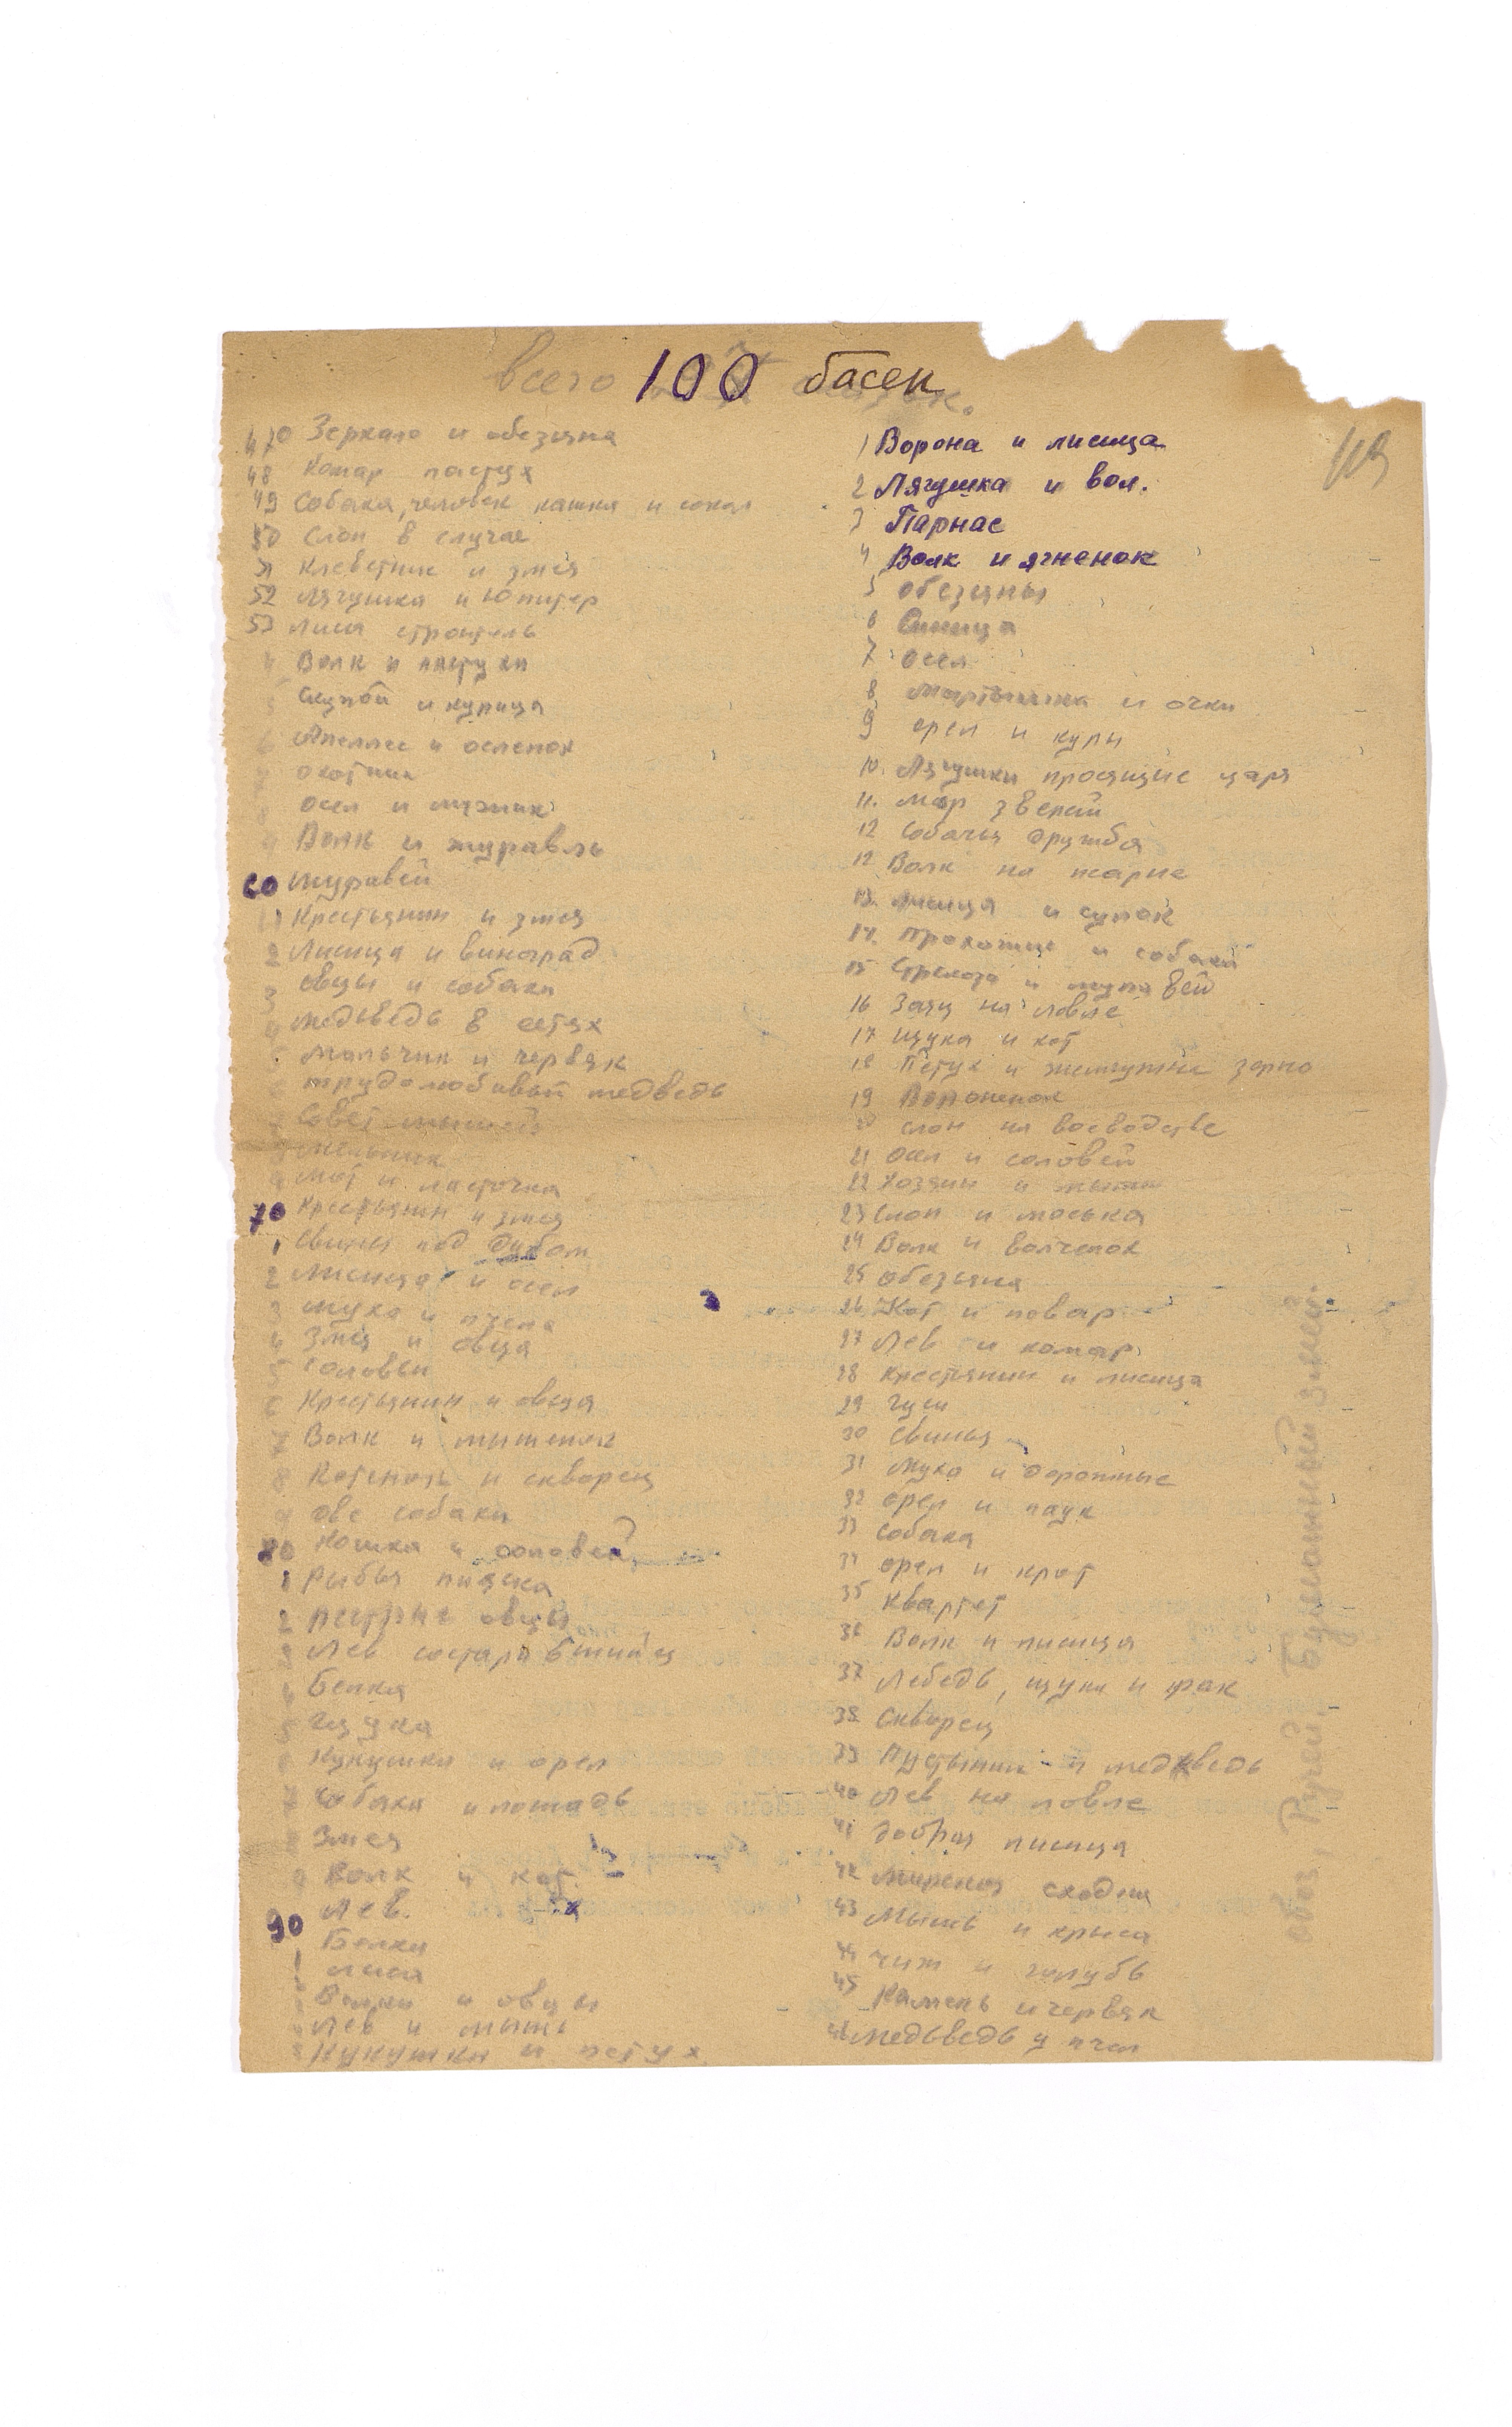 всего 100 басен
470 Зеркало и обезьяна
48 Комар пастух
49 Собака, человек кошка и сокол
50 Слон в случае
51 Клеветник и змея
52 Лягушка и Юпитер
53 Лиса строитель
4 Волк и пастухи
5 Скупой и курица
6 Апеллес и осленок
7 охотник
8 осел и мужик
9 Волк и журавль
60 Муравей
1 Крестьянин и змея
2 Лисица и виноград
3 Овцы и собаки
4 Медьведь в сетях
5 Мальчик и червяк
6 трудолюбивый медведь
7 Совет мышей
8 мельник
9 Мот и ласточка
70 Крестьянин и змея
1 Свинья под дубом
2 Лисица и осел
3 муха и пчела
4 Змея и овца
5 Соловьи
6 Крестьянин и овца
7 Волк и мышенок
8 Котенок и скворец
9 две собаки
80 Кошка и соловей
1 Рыбья пляска
2 Пестрые овцы
3 Лев состаревшийся
4 Белка
5 Щука
6 Кукушка и орел
7 Собака и лошадь
8 Змея
9 Волк и кот.
90 Лев.
Белка
1 лиса
Волки и овцы
Лев и мышь
Кукушка и петух
119
1 Ворона и лисица
2 Лягушка и вол.
3 Парнас
4 Волк и ягненок
5 обезьяны
6 Синица
7 осел
8 Мартышка и очки
9 орел и куры
10. Лягушки просящие царя
11. Мор зверей
12 Собачья дружба
12 Волк на псарне
13. Лисица и сурок
14. Прохожие и собаки
15 Стрекоза и муравей
16 Заяц на ловле
17 щука и кот
18 Петух и жемчужное зерно
19 Вороненок
20 слон на воеводстве
21 Осел и соловей
22 Хозяин и мыши
23 Слон и моська
24 Волк и волченок
25 обезьяна
26 Кот и повар
27 Лев и комар
28 Крестьянин и лисица
29 Гуси
30 Свинья
31 Муха и дорожные
32 орел и паук
33 Собака
34 орел и крот
35 Квартет
36 Волк и лисица
37 Лебедь, щука и рак
38 Скворец
39 Пустынник и медведь
40 Лев на ловле
41 добрая лисица
42 Мирская сходка
43 Мышь и крыса
44 чиж и голубь
45 Камень и червяк
46 Медьведь у пчел
обоз, Ручей, Бумажный змей.